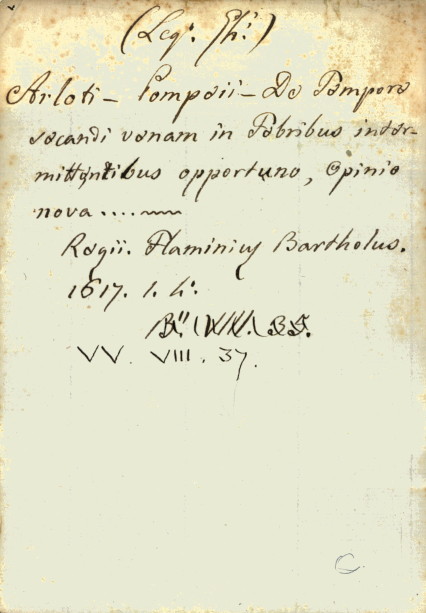 (Leg: Ph:)
Arloti - Pompeii - De Tempore
secandi venam in Febribus inter-
mittentibus opportuno, Opinio
nova....
Regii. Flaminius Bartholus.
1617. 1. 4:
VV. VIII. 37.
C.